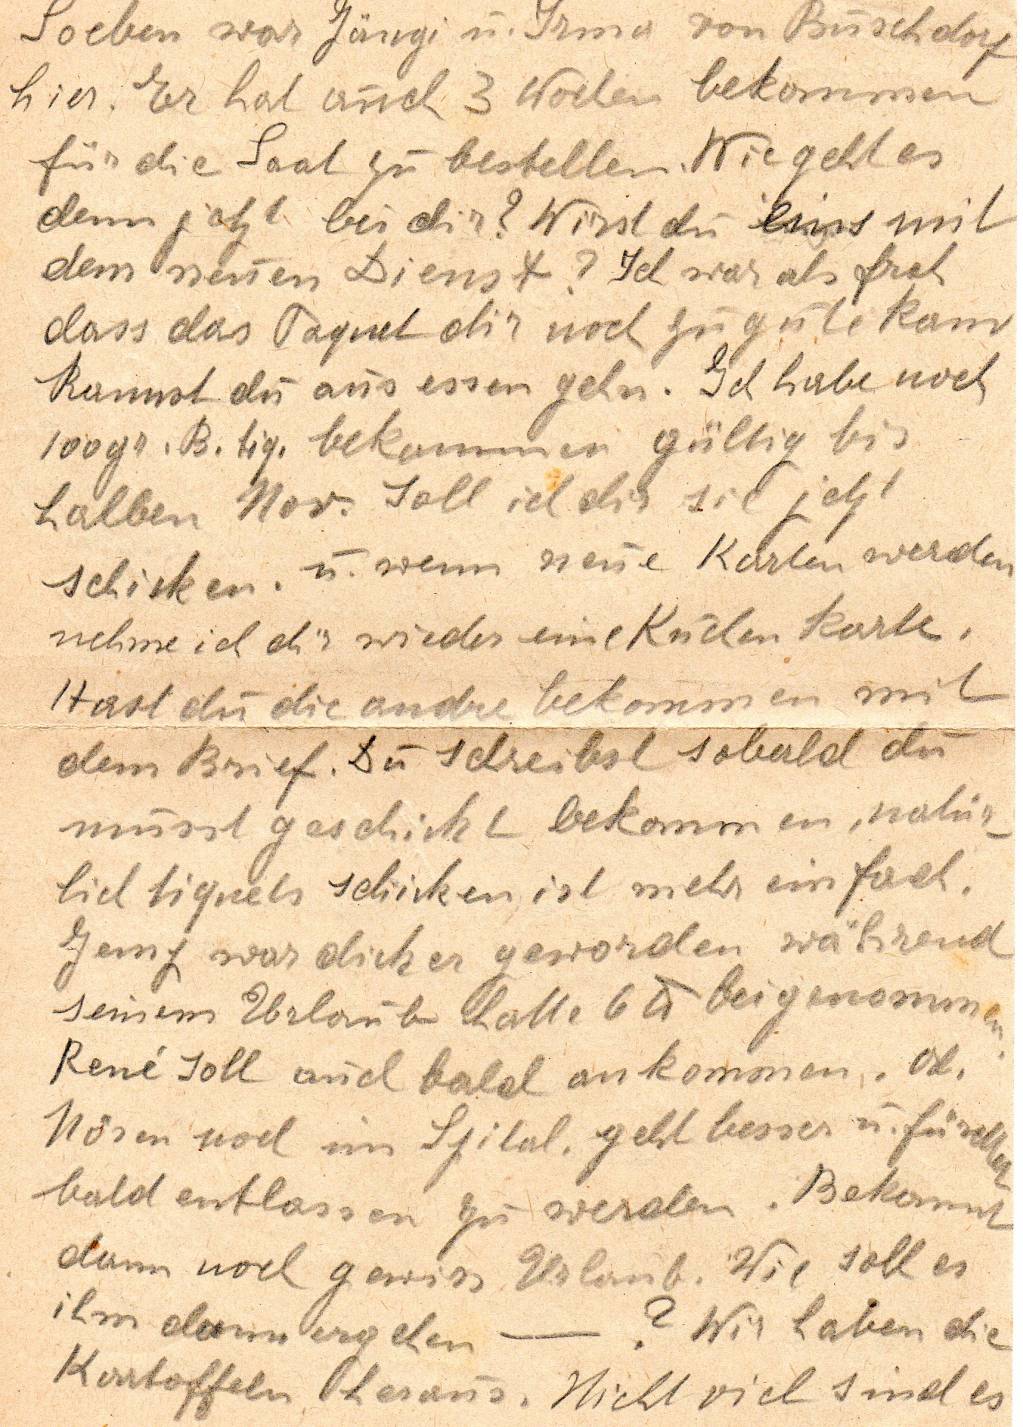 Soeben war Jängi u. Irma von Buschdorf
hier. Er hat auch 3 Wochen bekommen
für die Saat zu bestellen. Wie geht es
denn jetzt bei dir? Wirst du eins mit
dem neuen Dienst? Ich war als froh
dass das Paquet dir noch zu gute kam
Kannst du aus essen gehn. Ich habe noch
100gr. B. tiq. bekommen gültig bis
halben Nov. Soll ich dir sie jetzt
schicken. u. wenn neue Karten werden
nehme ich dir wieder eine Kuchen karte.
Hast du die andre bekommen mit
dem Brief. Du schreibst sobald du
musst geschickt bekommen, natür-
lich tiquets schicken ist mehr einfach.
war dicker geworden während
seinem Urlaub hatte 6 ℔ beigenommen.
René soll auch bald ankommen. Ok.
Nören noch im Spital. geht besser u. fürchtet
bald entlassen zu werden. Bekommt
dann noch gewiss Urlaub. Wie soll es
ihm dann ergehen — ? Wir haben die
Kartoffeln heraus. Nicht viel sind es